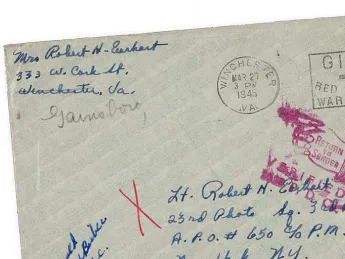 Mrs Robert H. Earhart
333 W. Cork St.
Winchester, Va.
Gainsboro,
WINCHESTER
MAR 27
3 PM
1945
VA.
GI
RED
WAR
Return
to
Sender
VERIFIED
Lt. Robert H. Earhart
23rd Photo Sq. 3rd
A.P.O. # 650 c/o P.M.
New York N.Y.